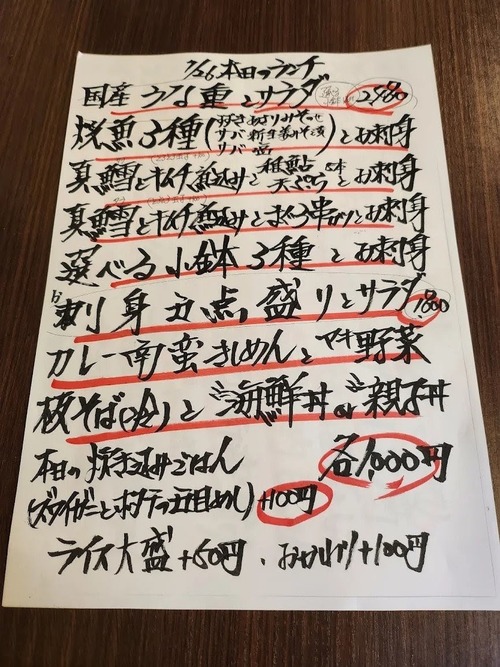 7/26本日のランチ
国産うな重とサラダ 2,480円
焼魚3種( とお刺身
サバ
サバ
真鱈とキムチ 稚鮎天ぷら とお刺身
真鱈とキムチ とまぐろ串カツとお刺身
選べる小鉢3種とお刺身
お刺身五点盛りとサラダ 1600円
カレー南蛮きしめんと 野菜
板そば(冷)と海鮮丼or親子丼
各1,000円
本日の炊き込みごはん
(ズワイガニとホタテの五目めし)+100円
ライス大盛+50円、おかわり+100円